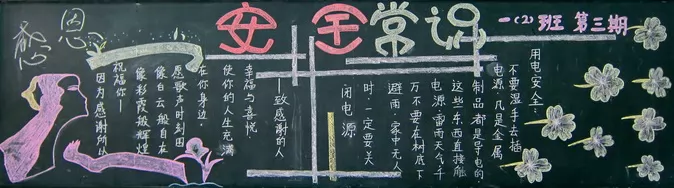 感恩
安全常识
一(2)班 第三期
用电安全:
不要湿手去插
电源,凡是金属
制品都是导电的
这些东西直接触
电源,雷雨天气千
万不要在树底下
避雨,家中无人
时,一定要关
闭电源
——致感谢的人
幸福与喜悦
使你的人生充满
在你身边,
愿歌声时刻围
像白云般自在
像彩霞般辉煌
祝福你——
因为感谢所以